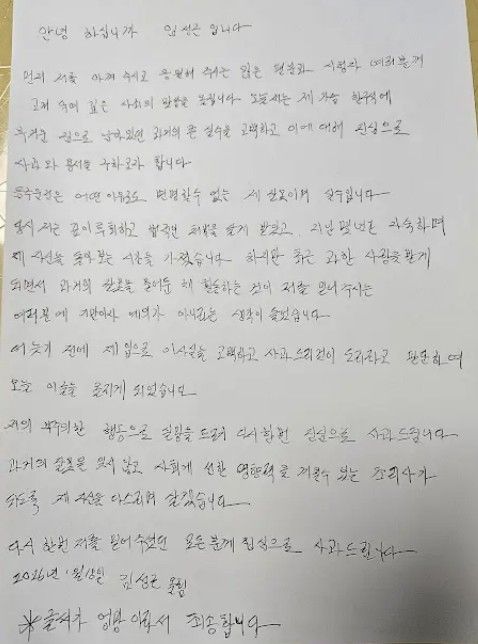 안녕 하십니까 임성근 입니다
먼저 저를 아껴 주시고 응원해 주시는 많은 팬분과 시청자 여러분께
고개 숙여 깊은 사죄의 말씀을 드립니다 오늘 저는 제 가슴 한구석에
무거운 짐으로 남아있던 과거의 큰 실수를 고백하고 이에 대해 진심으로
사과와 용서를 구하고자 합니다
음주운전은 어떤 이유로도 변명할수 없는 제 잘못이며 실수입니다
당시 저는 깊이 후회하고 법적인 처벌을 달게 받았고, 지난 몇년은 자숙하며
제 자신을 돌아보는 시간을 가졌습니다 하지만 최근 과한 사랑을 받게
되면서 과거의 잘못을 묻어둔 채 활동하는 것이 저를 믿어주시는
여러분에 기만이자 예의가 아니라는 생각이 들었습니다
더 늦기 전에 제 입으로 이사실을 고백하고 사과드리것이 도리라고 판단하여
오늘 이글을 올리게 되었습니다
저의 부주의한 행동으로 실망을 드려 다시한번 진심으로 사과드립니다
과거의 잘못을 잊지 않고 사회에 선한 영향력을 끼칠수 있는 조리사가
되도록 제 자신을 다스리며 살겠습니다
다시 한번 저를 믿어주셨던 모든 분께 진심으로 사과드립니다
2026년 1월 일 임성근 올림
※글씨가 엉망 이라서 죄송합니다